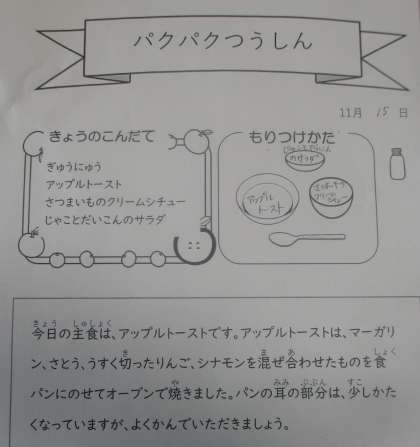 パクパクつうしん
11月 15 日
きょうのこんだて
ぎゅうにゅう
アップルトースト
さつまいものクリームシチュー
じゃことだいこんのサラダ
もりつけかた
じゃことだいこん
のサラダ
アップル
トースト
さつまいもの
クリーム
シチュー
今日の主食は、アップルトーストです。アップルトーストは、マーガリ
ン、さとう、うすく切ったりんご、シナモンを混ぜ合わせたものを食
パンにのせてオーブンで焼きました。パンの耳の部分は、少しかた
くなっていますが、よくかんでいただきましょう。